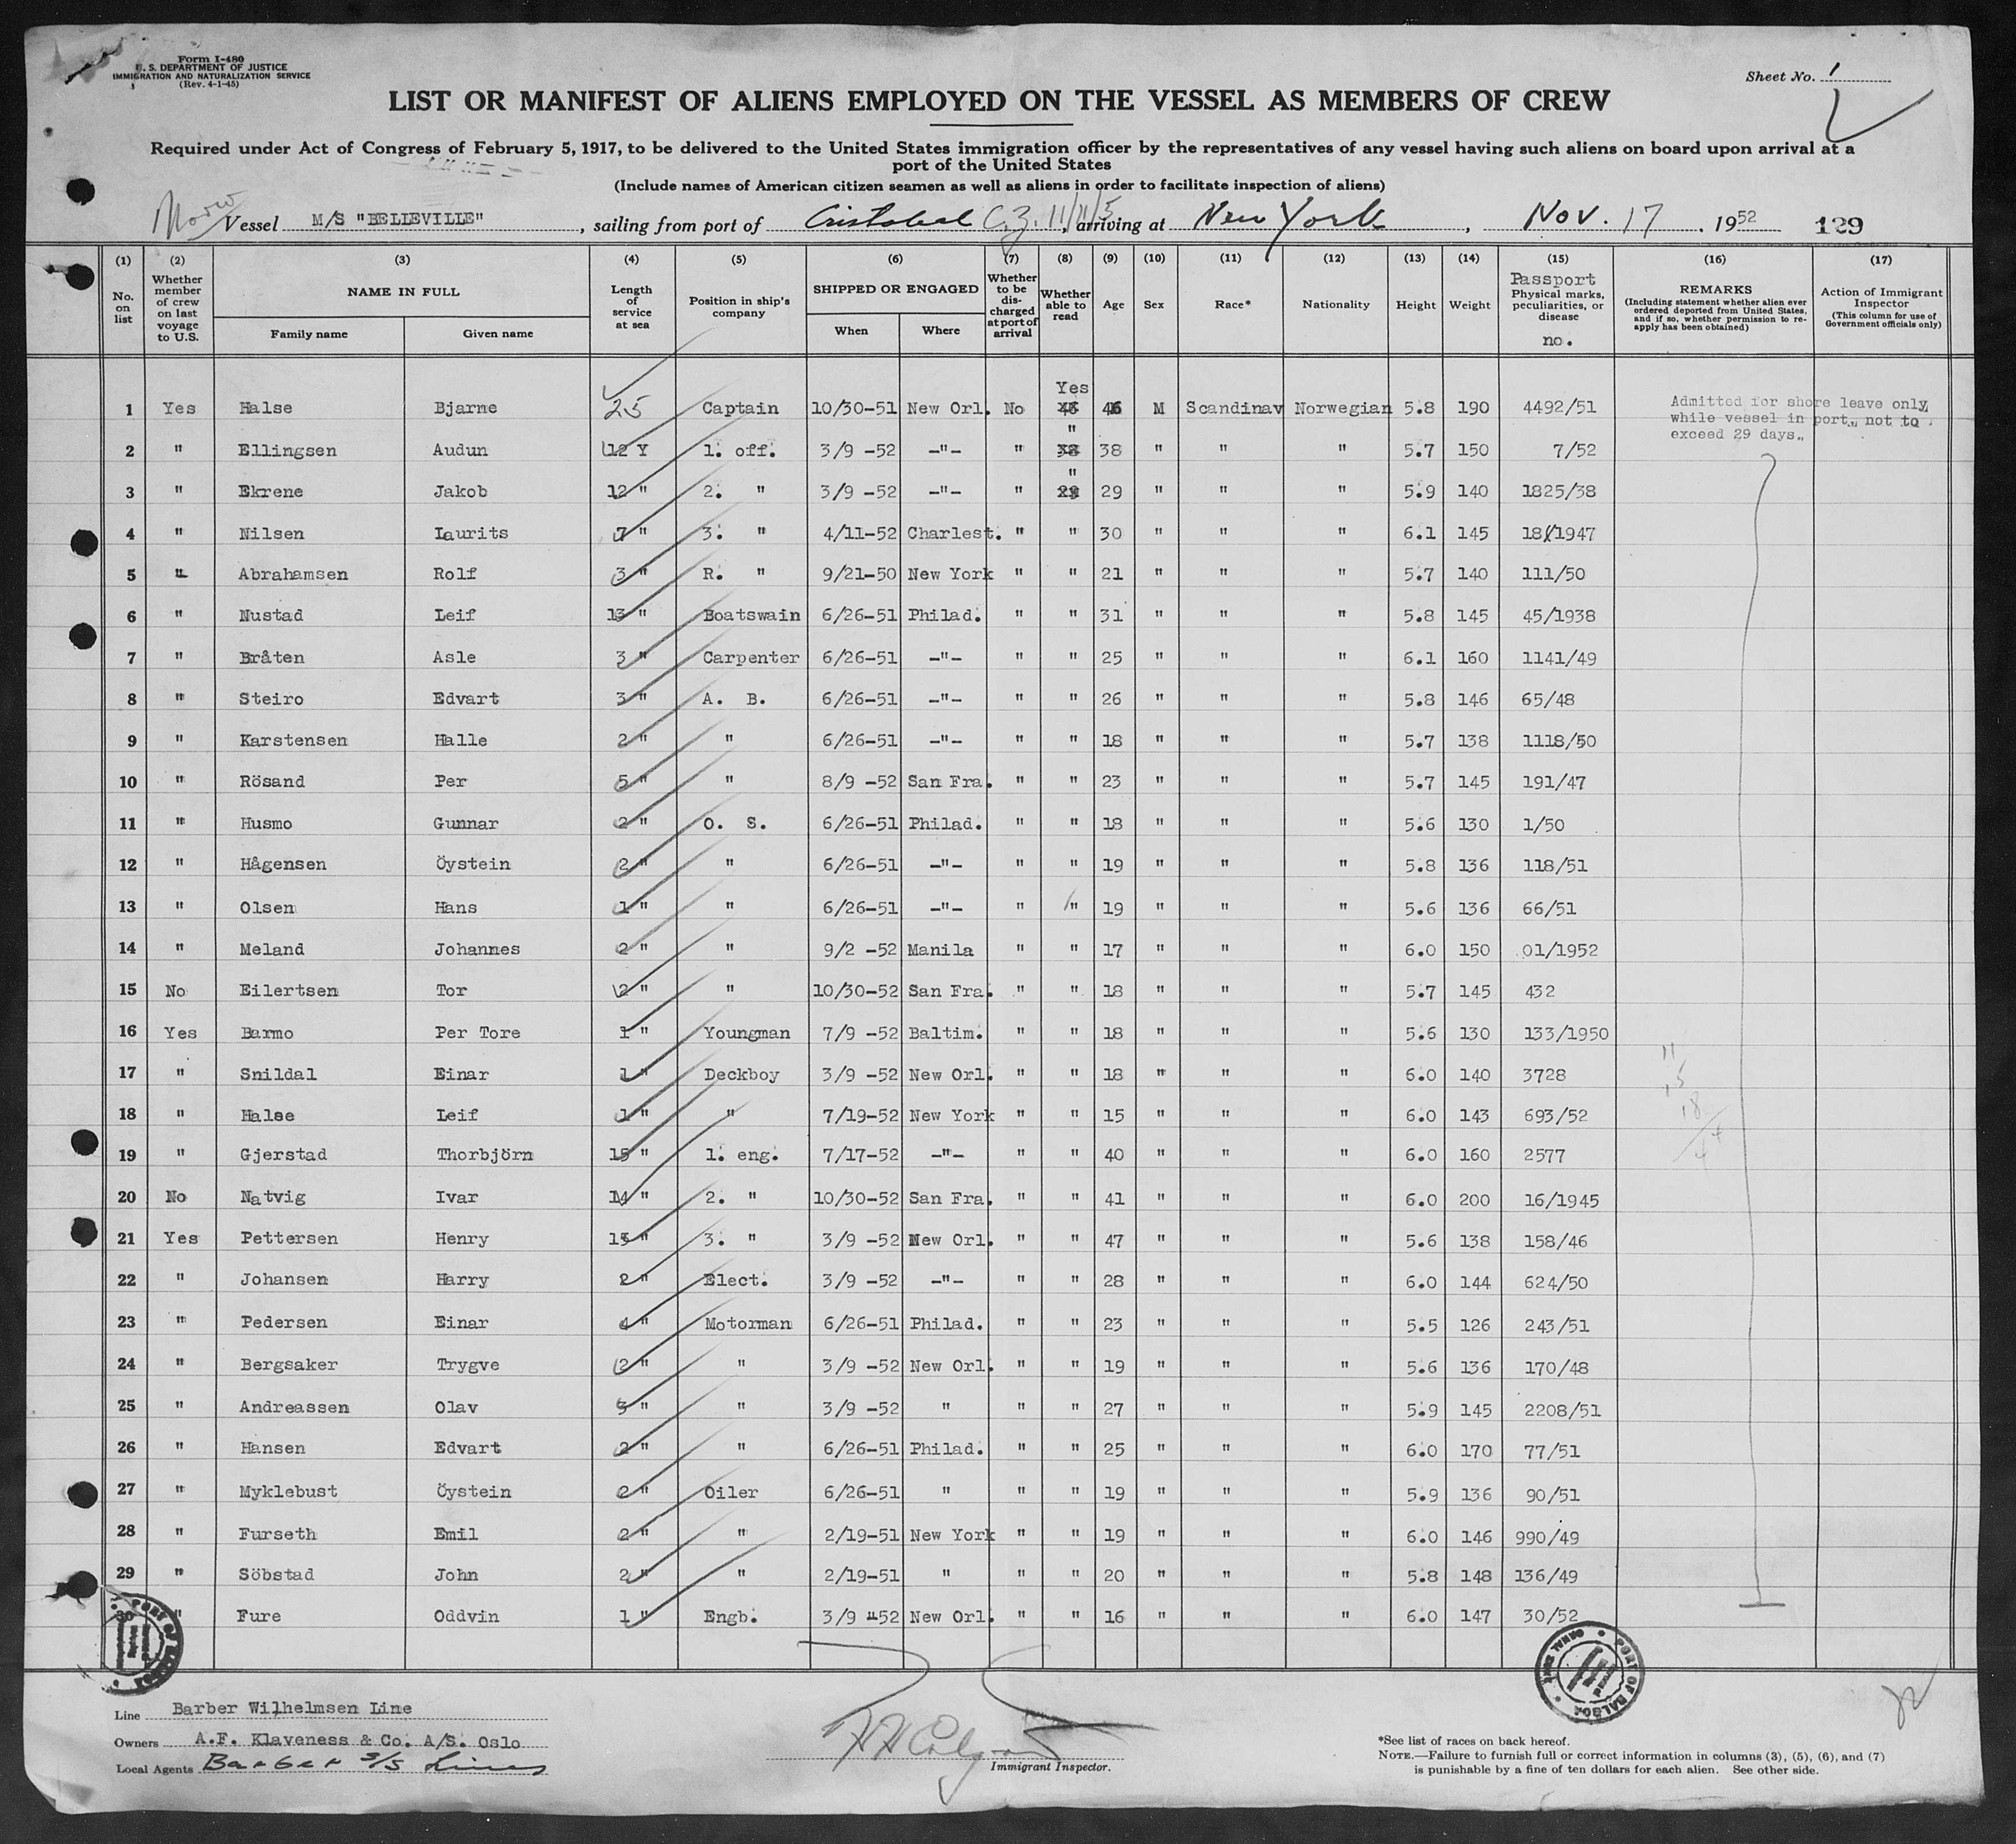 Form I-480
U. S. DEPARTMENT OF JUSTICE
IMMIGRATION AND NATURALIZATION SERVICE
(Rev. 4-1-45)
Sheet No. 1
LIST OR MANIFEST OF ALIENS EMPLOYED ON THE VESSEL AS MEMBERS OF CREW
Required under Act of Congress of February 5, 1917, to be delivered to the United States immigration officer by the representatives of any vessel having such aliens on board upon arrival at a
port of the United States
(Include names of American citizen seamen as well as aliens in order to facilitate inspection of aliens)
Vessel M/S "BELLEVILLE", sailing from port of Cristobal C.Z., arriving at New York, Nov. 17, 1952 129
(1) (2) (3) (4) (5) (6) (7) (8) (9) (10) (11) (12) (13) (14) (15) (16) (17)
No. on list
Whether member of crew on last voyage to U.S.
NAME IN FULL
Family name Given name
Length of service at sea
Position in ship's company
SHIPPED OR ENGAGED
When Where
Whether to be discharged at port of arrival
Whether able to read
Age Sex Race* Nationality Height Weight
Passport
Physical marks, peculiarities, or disease
no.
REMARKS
(Including statement whether alien ever ordered deported from United States, and if so, whether permission to reapply has been obtained)
Action of Immigrant Inspector
(This column for use of Government officials only)
1 Yes Halse Bjarne 25 Captain 10/30-51 New Orl. No Yes 46 M Scandinav Norwegian 5.8 190 4492/51
Admitted for shore leave only
while vessel in port, not to
exceed 29 days.
2 " Ellingsen Audun 12 Y 1. off. 3/9 -52 -"- " " 38 " " " 5.7 150 7/52
3 " Ekrene Jakob 12 " 2. " 3/9 -52 -"- " " 29 " " " 5.9 140 1825/38
4 " Nilsen Laurits 7 " 3. " 4/11-52 Charlest. " " 30 " " " 6.1 145 18/1947
5 " Abrahamsen Rolf 3 " R. " 9/21-50 New York " " 21 " " " 5.7 140 111/50
6 " Nustad Leif 13 " Boatswain 6/26-51 Philad. " " 31 " " " 5.8 145 45/1938
7 " Bråten Asle 3 " Carpenter 6/26-51 -"- " " 25 " " " 6.1 160 1141/49
8 " Steiro Edvart 3 " A. B. 6/26-51 -"- " " 26 " " " 5.8 146 65/48
9 " Karstensen Halle 2 " " 6/26-51 -"- " " 18 " " " 5.7 138 1118/50
10 " Rösand Per 5 " " 8/9 -52 San Fra. " " 23 " " " 5.7 145 191/47
11 " Husmo Gunnar 2 " O. S. 6/26-51 Philad. " " 18 " " " 5.6 130 1/50
12 " Hågensen Öystein 2 " " 6/26-51 -"- " " 19 " " " 5.8 136 118/51
13 " Olsen Hans 1 " " 6/26-51 -"- " " 19 " " " 5.6 136 66/51
14 " Meland Johannes 2 " " 9/2 -52 Manila " " 17 " " " 6.0 150 01/1952
15 No Eilertsen Tor 2 " " 10/30-52 San Fra. " " 18 " " " 5.7 145 432
16 Yes Barmo Per Tore 1 " Youngman 7/9 -52 Baltim. " " 18 " " " 5.6 130 133/1950
17 " Snildal Einar 1 " Deckboy 3/9 -52 New Orl. " " 18 " " " 6.0 140 3728
18 " Halse Leif 1 " " 7/19-52 New York " " 15 " " " 6.0 143 693/52
19 " Gjerstad Thorbjörn 15 " 1. eng. 7/17-52 -"- " " 40 " " " 6.0 160 2577
20 No Natvig Ivar 14 " 2. " 10/30-52 San Fra. " " 41 " " " 6.0 200 16/1945
21 Yes Pettersen Henry 15 " 3. " 3/9 -52 New Orl. " " 47 " " " 5.6 138 158/46
22 " Johansen Harry 2 " Elect. 3/9 -52 -"- " " 28 " " " 6.0 144 624/50
23 " Pedersen Einar 4 " Motorman 6/26-51 Philad. " " 23 " " " 5.5 126 243/51
24 " Bergsaker Trygve 2 " " 3/9 -52 New Orl. " " 19 " " " 5.6 136 170/48
25 " Andreassen Olav 3 " " 3/9 -52 " " " 27 " " " 5.9 145 2208/51
26 " Hansen Edvart 2 " " 6/26-51 Philad. " " 25 " " " 6.0 170 77/51
27 " Myklebust Öystein 2 " Oiler 6/26-51 " " " 19 " " " 5.9 136 90/51
28 " Furseth Emil 2 " " 2/19-51 New York " " 19 " " " 6.0 146 990/49
29 " Söbstad John 2 " " 2/19-51 " " " 20 " " " 5.8 148 136/49
30 " Fure Oddvin 1 " Engb. 3/9 -52 New Orl. " " 16 " " " 6.0 147 30/52
PORT OF BALBOA
CANAL ZONE
Line Barber Wilhelmsen Line
Owners A.F. Klaveness & Co. A/S. Oslo
Local Agents Barber S/S Lines
Immigrant Inspector.
*See list of races on back hereof.
NOTE.—Failure to furnish full or correct information in columns (3), (5), (6), and (7)
is punishable by a fine of ten dollars for each alien. See other side.